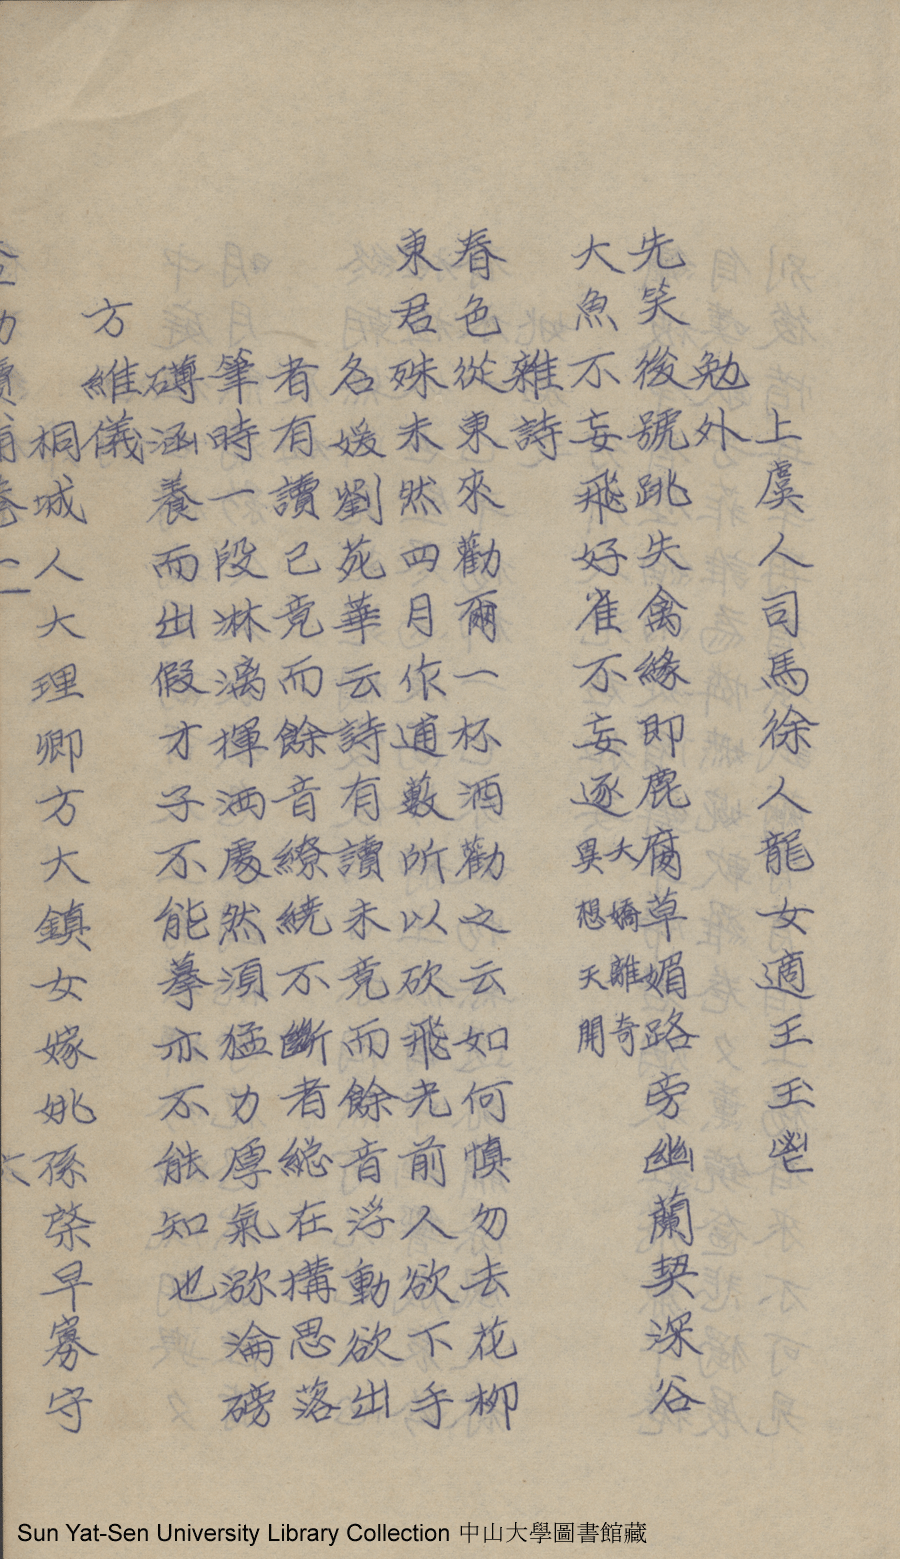 上虞人司馬徐人龍女適王玉鬯
勉外
先笑後號跳失禽緣即鹿腐草媚路旁幽蘭契深谷
大魚不妄飛好雀不妄逐大嬌離奇
異想天開
雜詩
春色從東來勸爾一杯酒勸之云如何慎勿去花柳
東君殊未然四月作逋藪所以砍飛光前人欲下手
名媛劉苑華云詩有讀未竟而餘音浮動欲出
者有讀已竟而餘音繚繞不斷者總在搆思落
筆時一段淋漓揮洒處然須猛力厚氣瀰淪磅
礡涵養而出假才子不能摹亦不能知也
方維儀
桐城人大理卿方大鎮女嫁姚孫棨早寡守
六
Sun Yat-Sen University Library Collection 中山大學圖書館藏